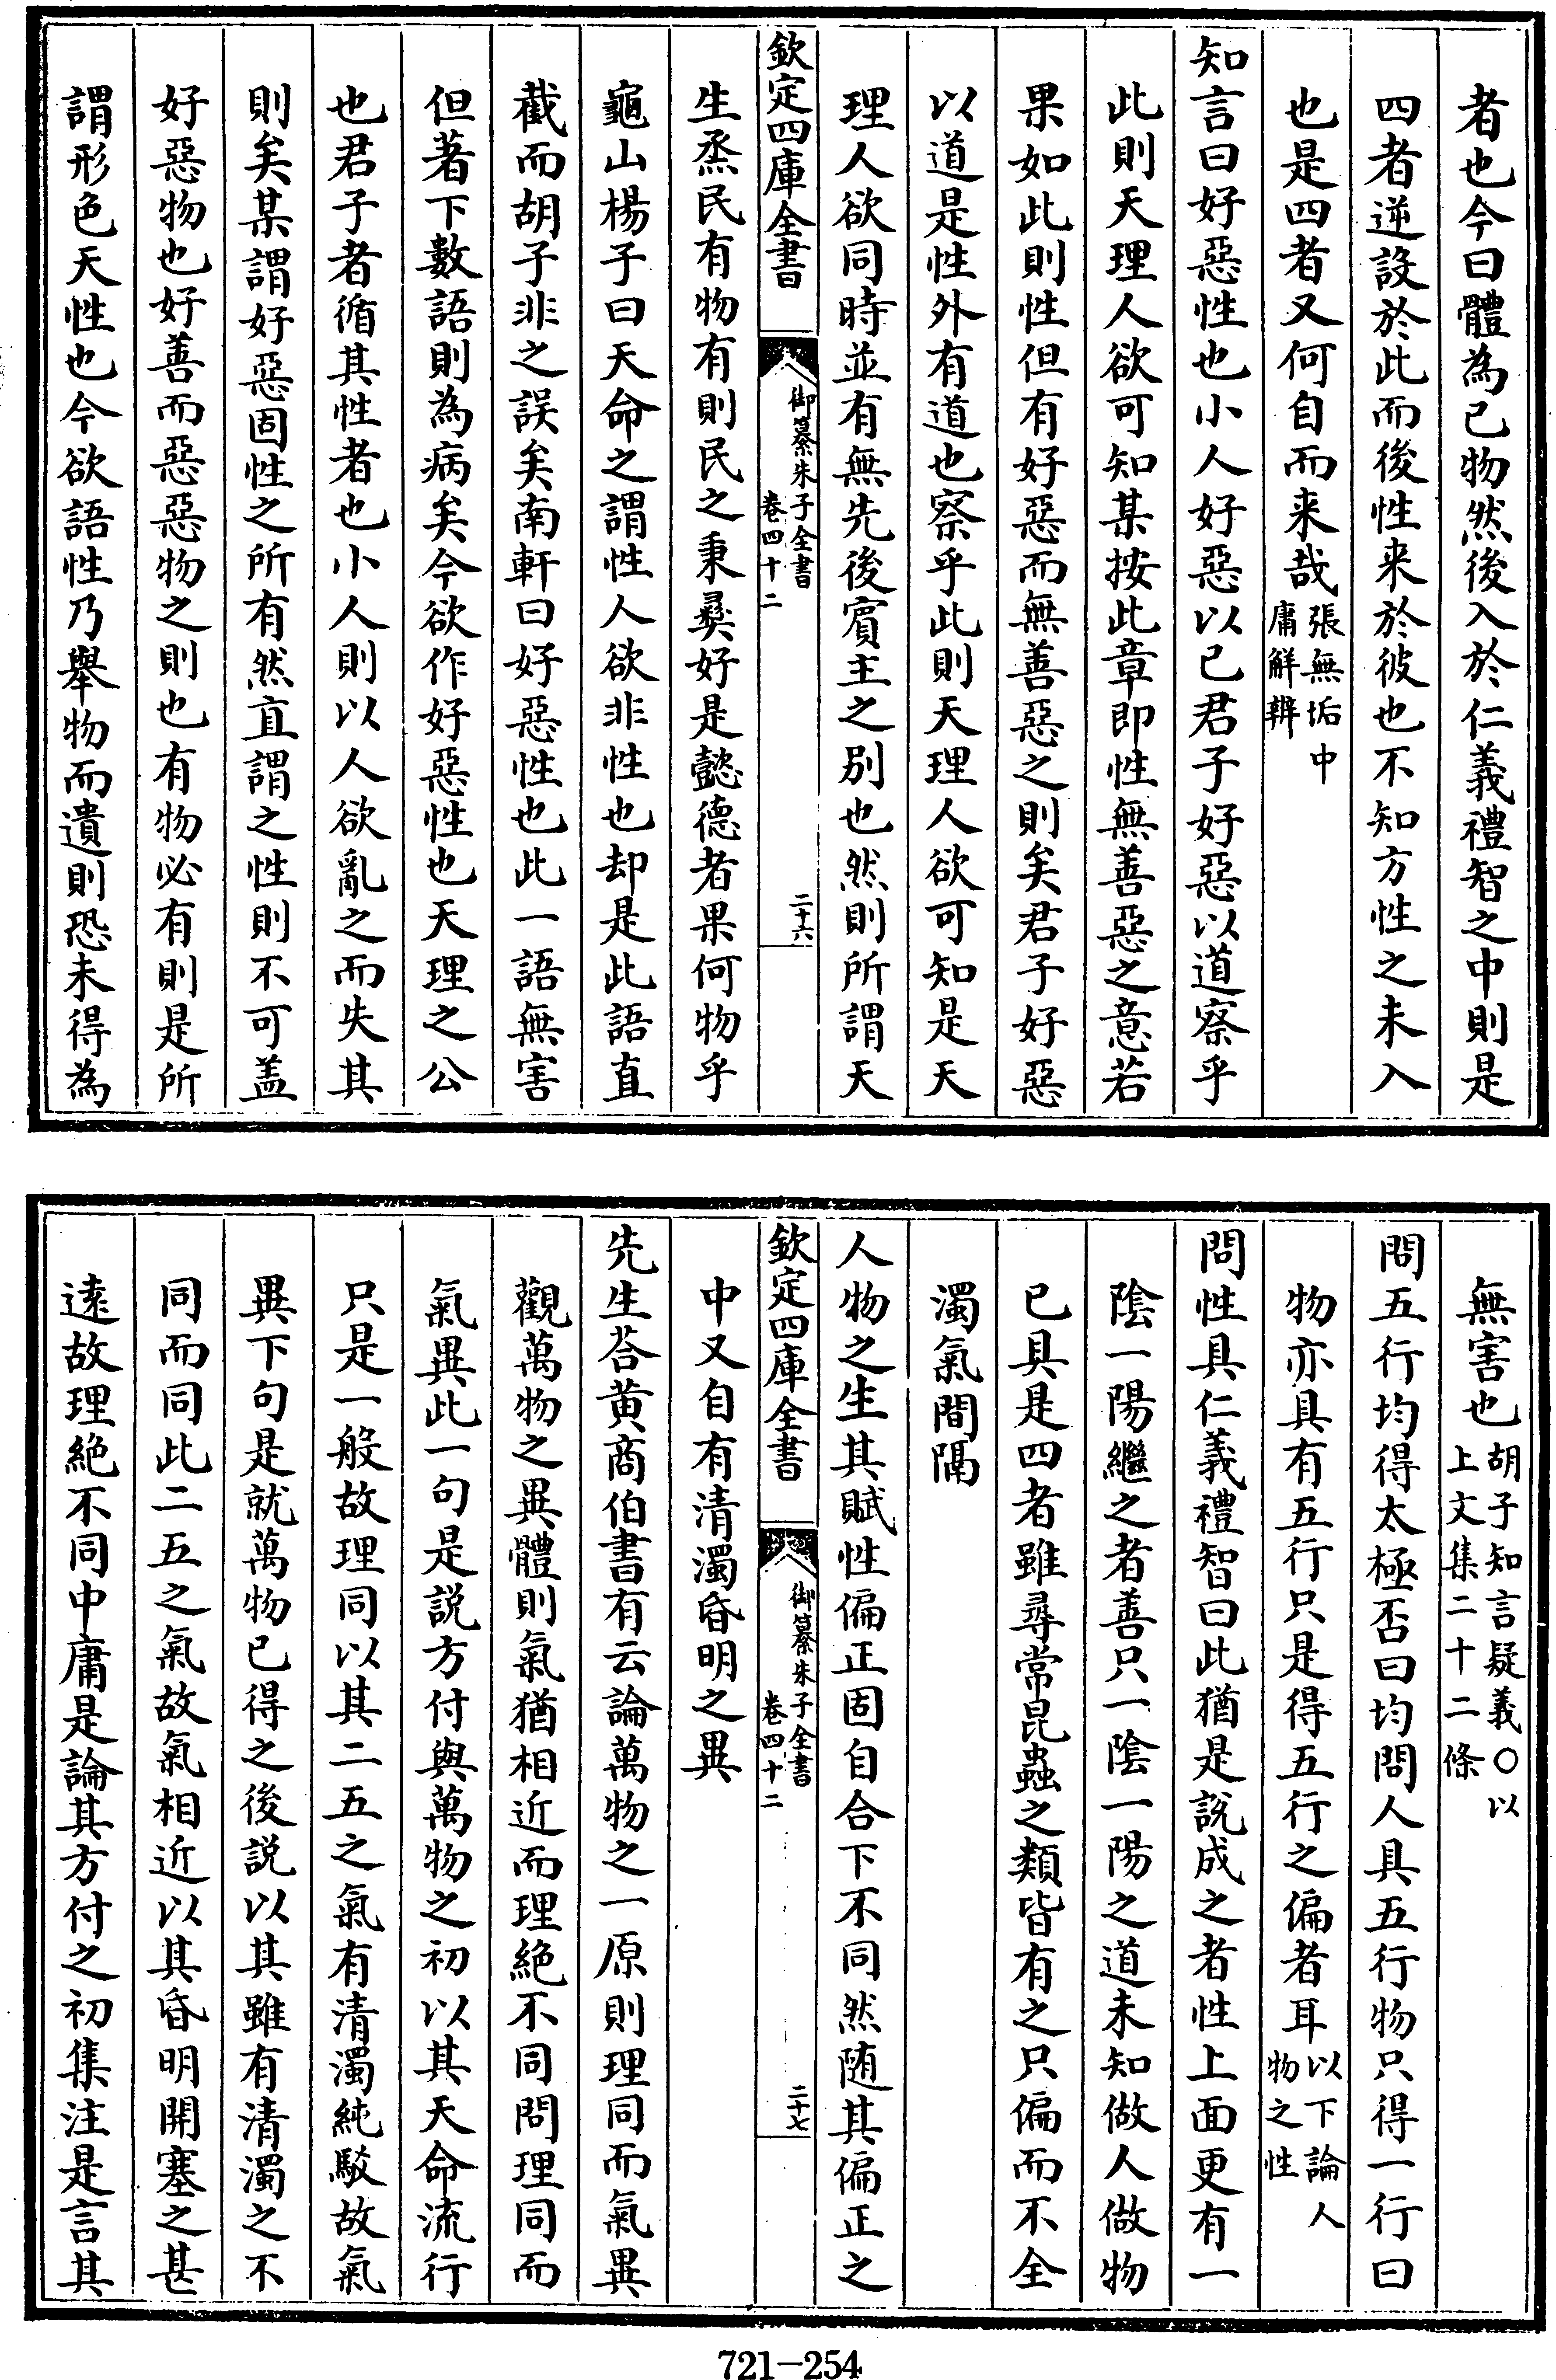 者也今曰體為已物然後入於仁義禮智之中則是
四者逆設於此而後性来於彼也不知方性之未入
也是四者又何自而来哉張無垢中
庸解辨
知言曰好惡性也小人好惡以已君子好惡以道察乎
此則天理人欲可知某按此章即性無善惡之意若
果如此則性但有好惡而無善惡之則矣君子好惡
以道是性外有道也察乎此則天理人欲可知是天
理人欲同時並有無先後賓主之別也然則所謂天
欽定四庫全書
御纂朱子全書
卷四十二
二十六
生烝民有物有則民之秉彞好是懿德者果何物乎
龜山楊子曰天命之謂性人欲非性也却是此語直
截而胡子非之誤矣南軒曰好惡性也此一語無害
但著下數語則為病矣今欲作好惡性也天理之公
也君子者循其性者也小人則以人欲亂之而失其
則矣某謂好惡固性之所有然直謂之性則不可盖
好惡物也好善而惡惡物之則也有物必有則是所
謂形色天性也今欲語性乃舉物而遺則恐未得為
無害也胡子知言疑義○以
上文集二十二條
問五行均得太極否曰均問人具五行物只得一行曰
物亦具有五行只是得五行之偏者耳以下論人
物之性
問性具仁義禮智曰此猶是說成之者性上面更有一
陰一陽繼之者善只一陰一陽之道未知做人做物
已具是四者雖尋常昆蟲之類皆有之只偏而不全
濁氣間隔
人物之生其賦性偏正固自合下不同然随其偏正之
欽定四庫全書
御纂朱子全書
卷四十二
二十七
中又自有清濁昏明之異
先生荅黄商伯書有云論萬物之一原則理同而氣異
觀萬物之異體則氣猶相近而理絶不同問理同而
氣異此一句是說方付與萬物之初以其天命流行
只是一般故理同以其二五之氣有清濁純駁故氣
異下句是就萬物已得之後說以其雖有清濁之不
同而同此二五之氣故氣相近以其昏明開塞之甚
逺故理絶不同中庸是論其方付之初集注是言其
721-254